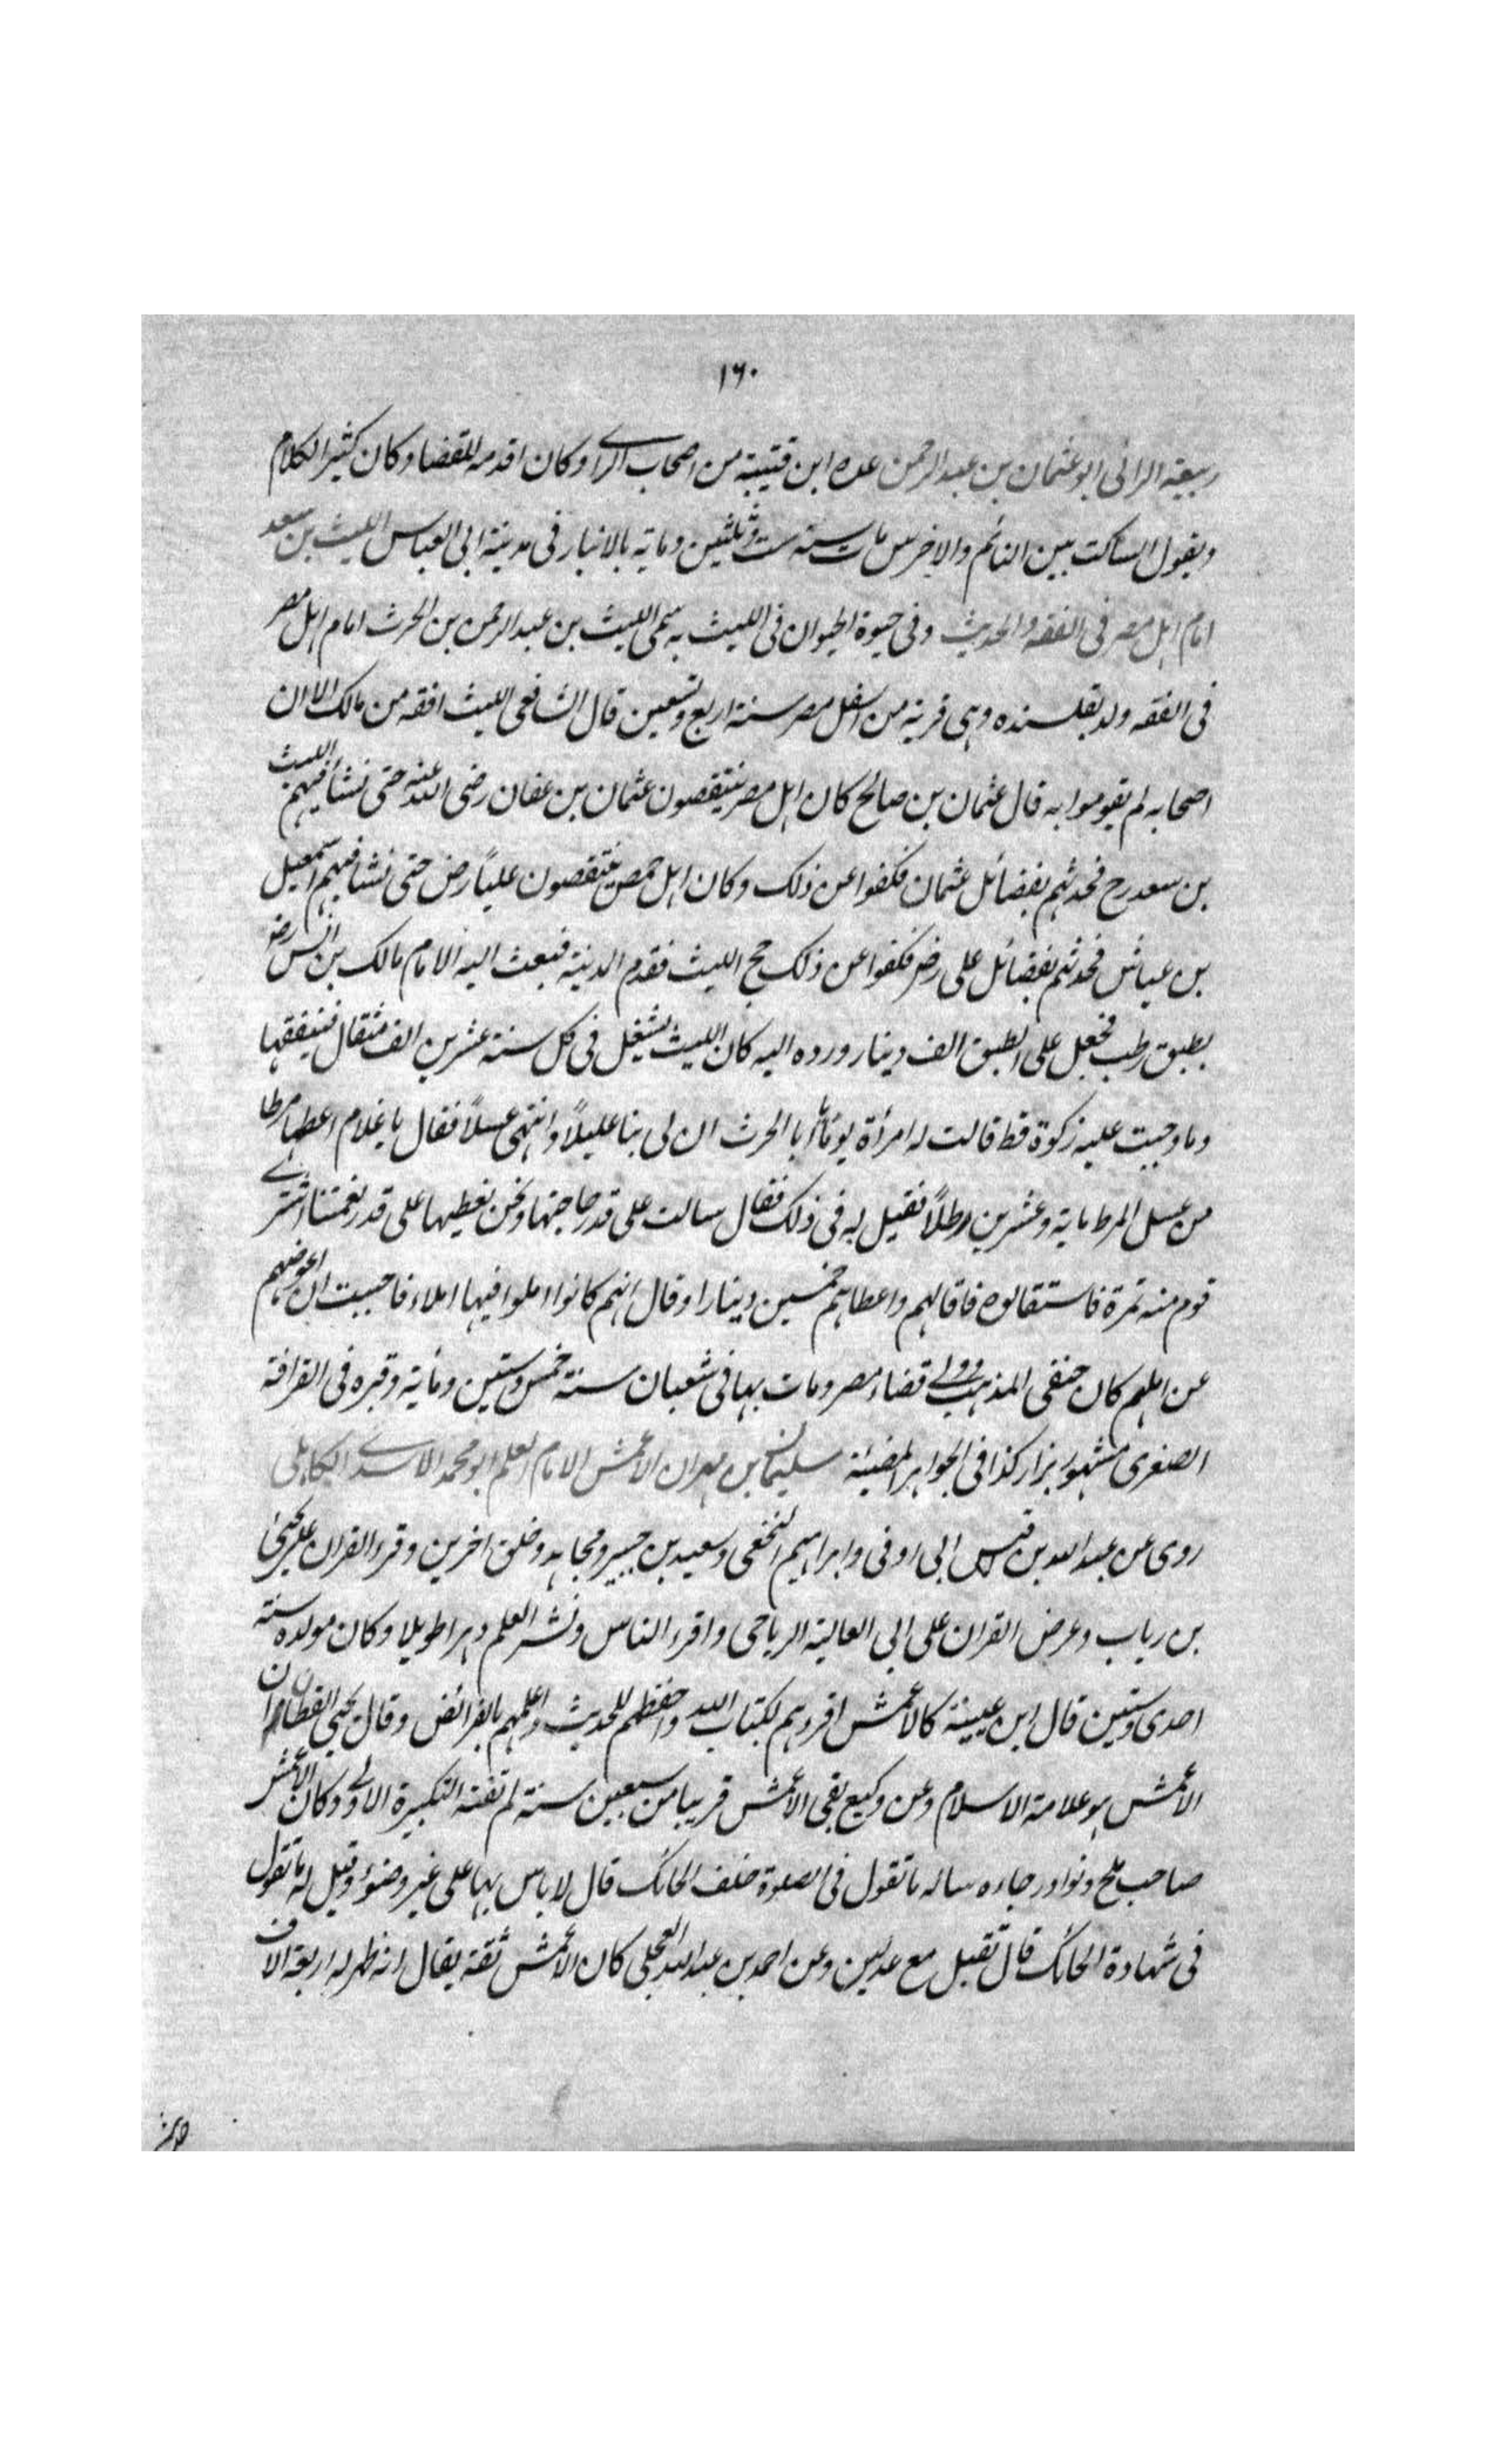 ١٦٠
ربيعة الرائى ابو عثمان بن عبد الرحمن عده ابن قتيبة من اصحاب الراى وكان اقدمه للقضا وكان كثير الكلام
ويقول الساكت بين النائم والاخرس مات سنة ست وثلثين وماية بالانبار فى مدينة ابى العباس الليث بن سعد
امام اهل مصر فى الفقه والحديث وفى حيوة الحيوان فى الليث به سمى الليث بن عبد الرحمن بن الحرث امام اهل مصر
فى الفقه ولد بقلسنده وهى قرية من اسفل مصر سنة اربع وتسعين قال الشافعى الليث افقه من مالك الا ان
اصحابه لم يقوموا به قال عثمان بن صالح كان اهل مصر ينتقصون عثمان بن عفان رضى الله عنه حتى نشا فيهم الليث
بن سعد رح فحدثهم بفضائل عثمان فكفوا عن ذلك وكان اهل حمص ينتقصون علياً رض حتى نشا فيهم اسمعيل
بن عياش فحدثهم بفضائل على رض فكفوا عن ذلك حج الليث فقدم المدينة فبعث اليه الامام مالك بن انس رض
بطبق رطب فجعل على الطبق الف دينار ورده اليه كان الليث يشتغل فى كل سنة عشرين الف مثقال فينفقها
وما وجبت عليه زكوة قط قالت له امرأة يوماً يا ابا الحرث ان لى بنا عليلاً واشتهى عسلاً فقال يا غلام اعطها مرطا
من عسل المرط ماية وعشرين رطلاً فقيل له فى ذلك فقال سالت على قدر حاجتها ونحن نعطيها على قدر نعمتنا اشترى
قوم منه ثمرة فاستقالوه فاقالهم واعطاهم خمسين دينارا وقال انهم كانوا املوا فيها املاء فاحببت ان اعوضهم
عن املهم كان حنفى المذهب وولى قضاء مصر ومات بها فى شعبان سنة خمس وستين وماية وقبره فى القرافة
الصغرى مشهور يزار كذا فى الجواهر المضيئة سليمان بن مهران الاعمش الامام العلم ابو محمد الاسدى الكاهلى
روى عن عبد الله بن قيس ابى اوفى وابراهيم النخعى وسعيد بن جبير ومجاهد وخلق اخرين وقرء القران على يحيى
بن رباب وعرض القران على ابى العالية الرياحى واقرء الناس ونشر العلم دهرا طويلا وكان مولده سنة
احدى وستين قال ابن عيينة كالاعمش اقرءهم لكتاب الله واحفظهم للحديث واعلمهم بالفرائض وقال يحيى القطان ان
الاعمش هو علامة الاسلام وعن وكيع بقى الاعمش قريبا من سبعين سنة لم تفته التكبيرة الاولى وكان الاعمش
صاحب ملح ونوادر جاءه ساله ما تقول فى الصلوة خلف الحائك قال لا باس بها على غير وضوء وقيل له ما تقول
فى شهادة الحائك قال تقبل مع عدلين وعن احمد بن عبد الله العجلى كان الاعمش ثقة يقال انه ظهر له اربعة الاف
حديث